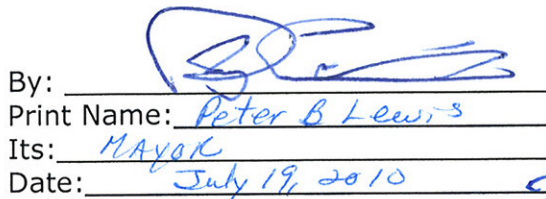 By:
Print Name: Peter B Lewis
Its: MAYOR
Date: July 19, 2010